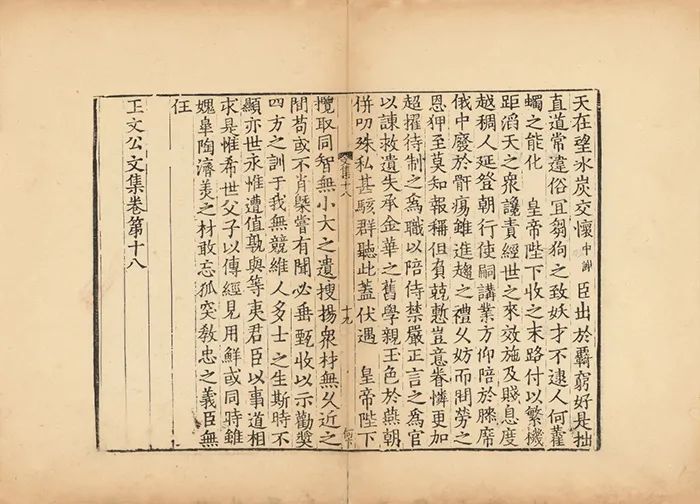 天在望氷炭交懷中謝 臣出於覊窮好是拙
直道常違俗宜芻狗之致妖才不逮人何藿
蠋之能化 皇帝陛下收之末路付以繁機
距滔天之衆讒責經世之來效施及賤息度
越稠人延登朝行使嗣講業方仰陪於滕席
俄中廢於骭瘍雖進趨之禮乆妨而問勞之
恩狎至莫知報稱但負兢慙豈意眷憐更加
超擢待制之爲職以陪侍禁嚴正言之爲官
以諫救遺失承金華之舊學親玉色於燕朝
併叨殊私甚駭群聽此蓋伏遇 皇帝陛下
文集十八
十九
攬取同智無小大之遺搜揚衆材無乆近之
間苟或不肖槩嘗有聞必垂甄收以示勸奬
四方之訓于我無競維人多士之生斯時不
顯亦世永惟遭值孰與等夷君臣以事道相
求是惟希世父子以傳經見用鮮或同時雖
媿臯陶濟羙之材敢忘狐突敎忠之義臣無
任
王文公文集卷第十八